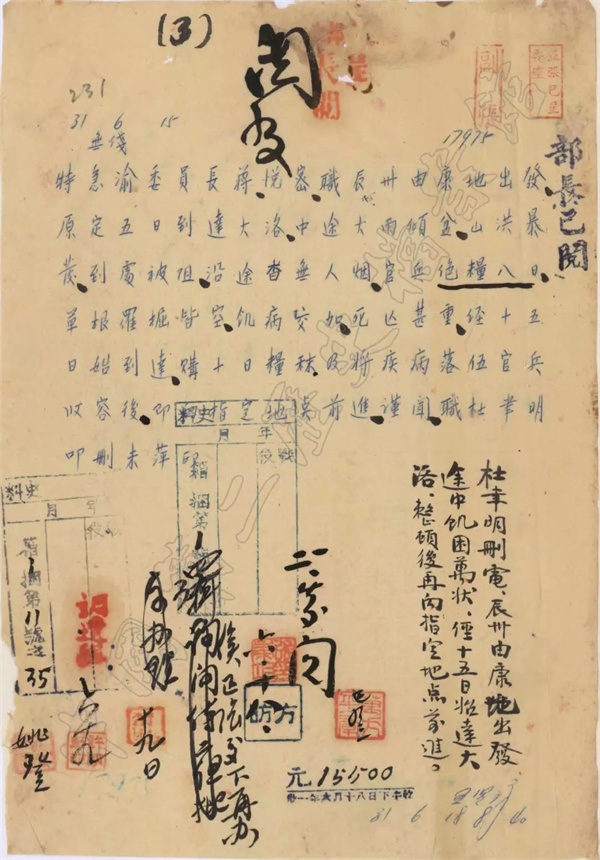 (3)
閱
231
31 6 15
無綫
17975
特急渝委員長蔣悅密職辰卅由康地出發
原定五日到達大洛中途大雨傾盆山洪暴
發到處被阻沿途杳無人烟官兵絕糧八日
草根羅掘皆空飢病交加死亡甚重經十五
日始到達購十日糧秣及將疾病落伍官兵
收容後即向指定地點前進謹聞職杜聿明
叩刪未萍印
部長已閱
副張
杜聿明刪電、辰卅由康地出發
途中飢困萬狀、經十五日始達大
洛、整頓後再向指定地点前進。
史料
年 月
戰役
箱 捆第
史料
年 月
舊 捆第11號之
135
十九日
六、十八、
六十九
姚瑩
方舫
元 15500
31 6 18 8/40